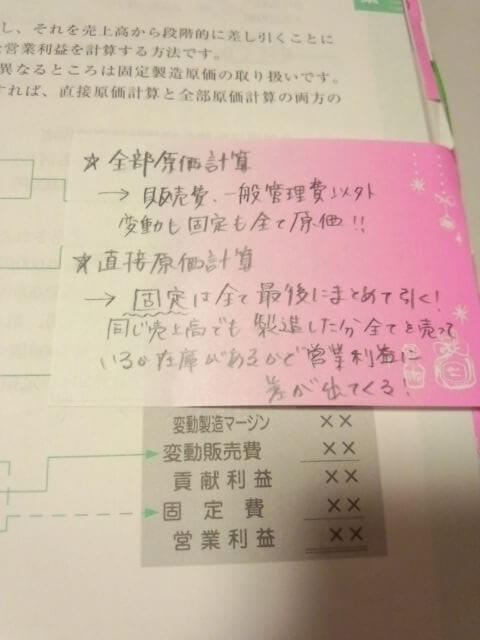 し、それを売上高から段階的に差し引くことに
営業利益を計算する方法です。
異なるところは固定製造原価の取り扱いです。
すれば、直接原価計算と全部原価計算の両方の
☆ 全部原価計算
→ 販売費、一般管理費以外
変動も固定も全て原価!!
☆ 直接原価計算
→ 固定は全て最後にまとめて引く!
同じ売上高でも製造した分全てを売って
いるか在庫があるかで営業利益に
差が出てくる!
変動製造マージン ××
変動販売費 ××
貢献利益 ××
固定費 ××
営業利益 ××